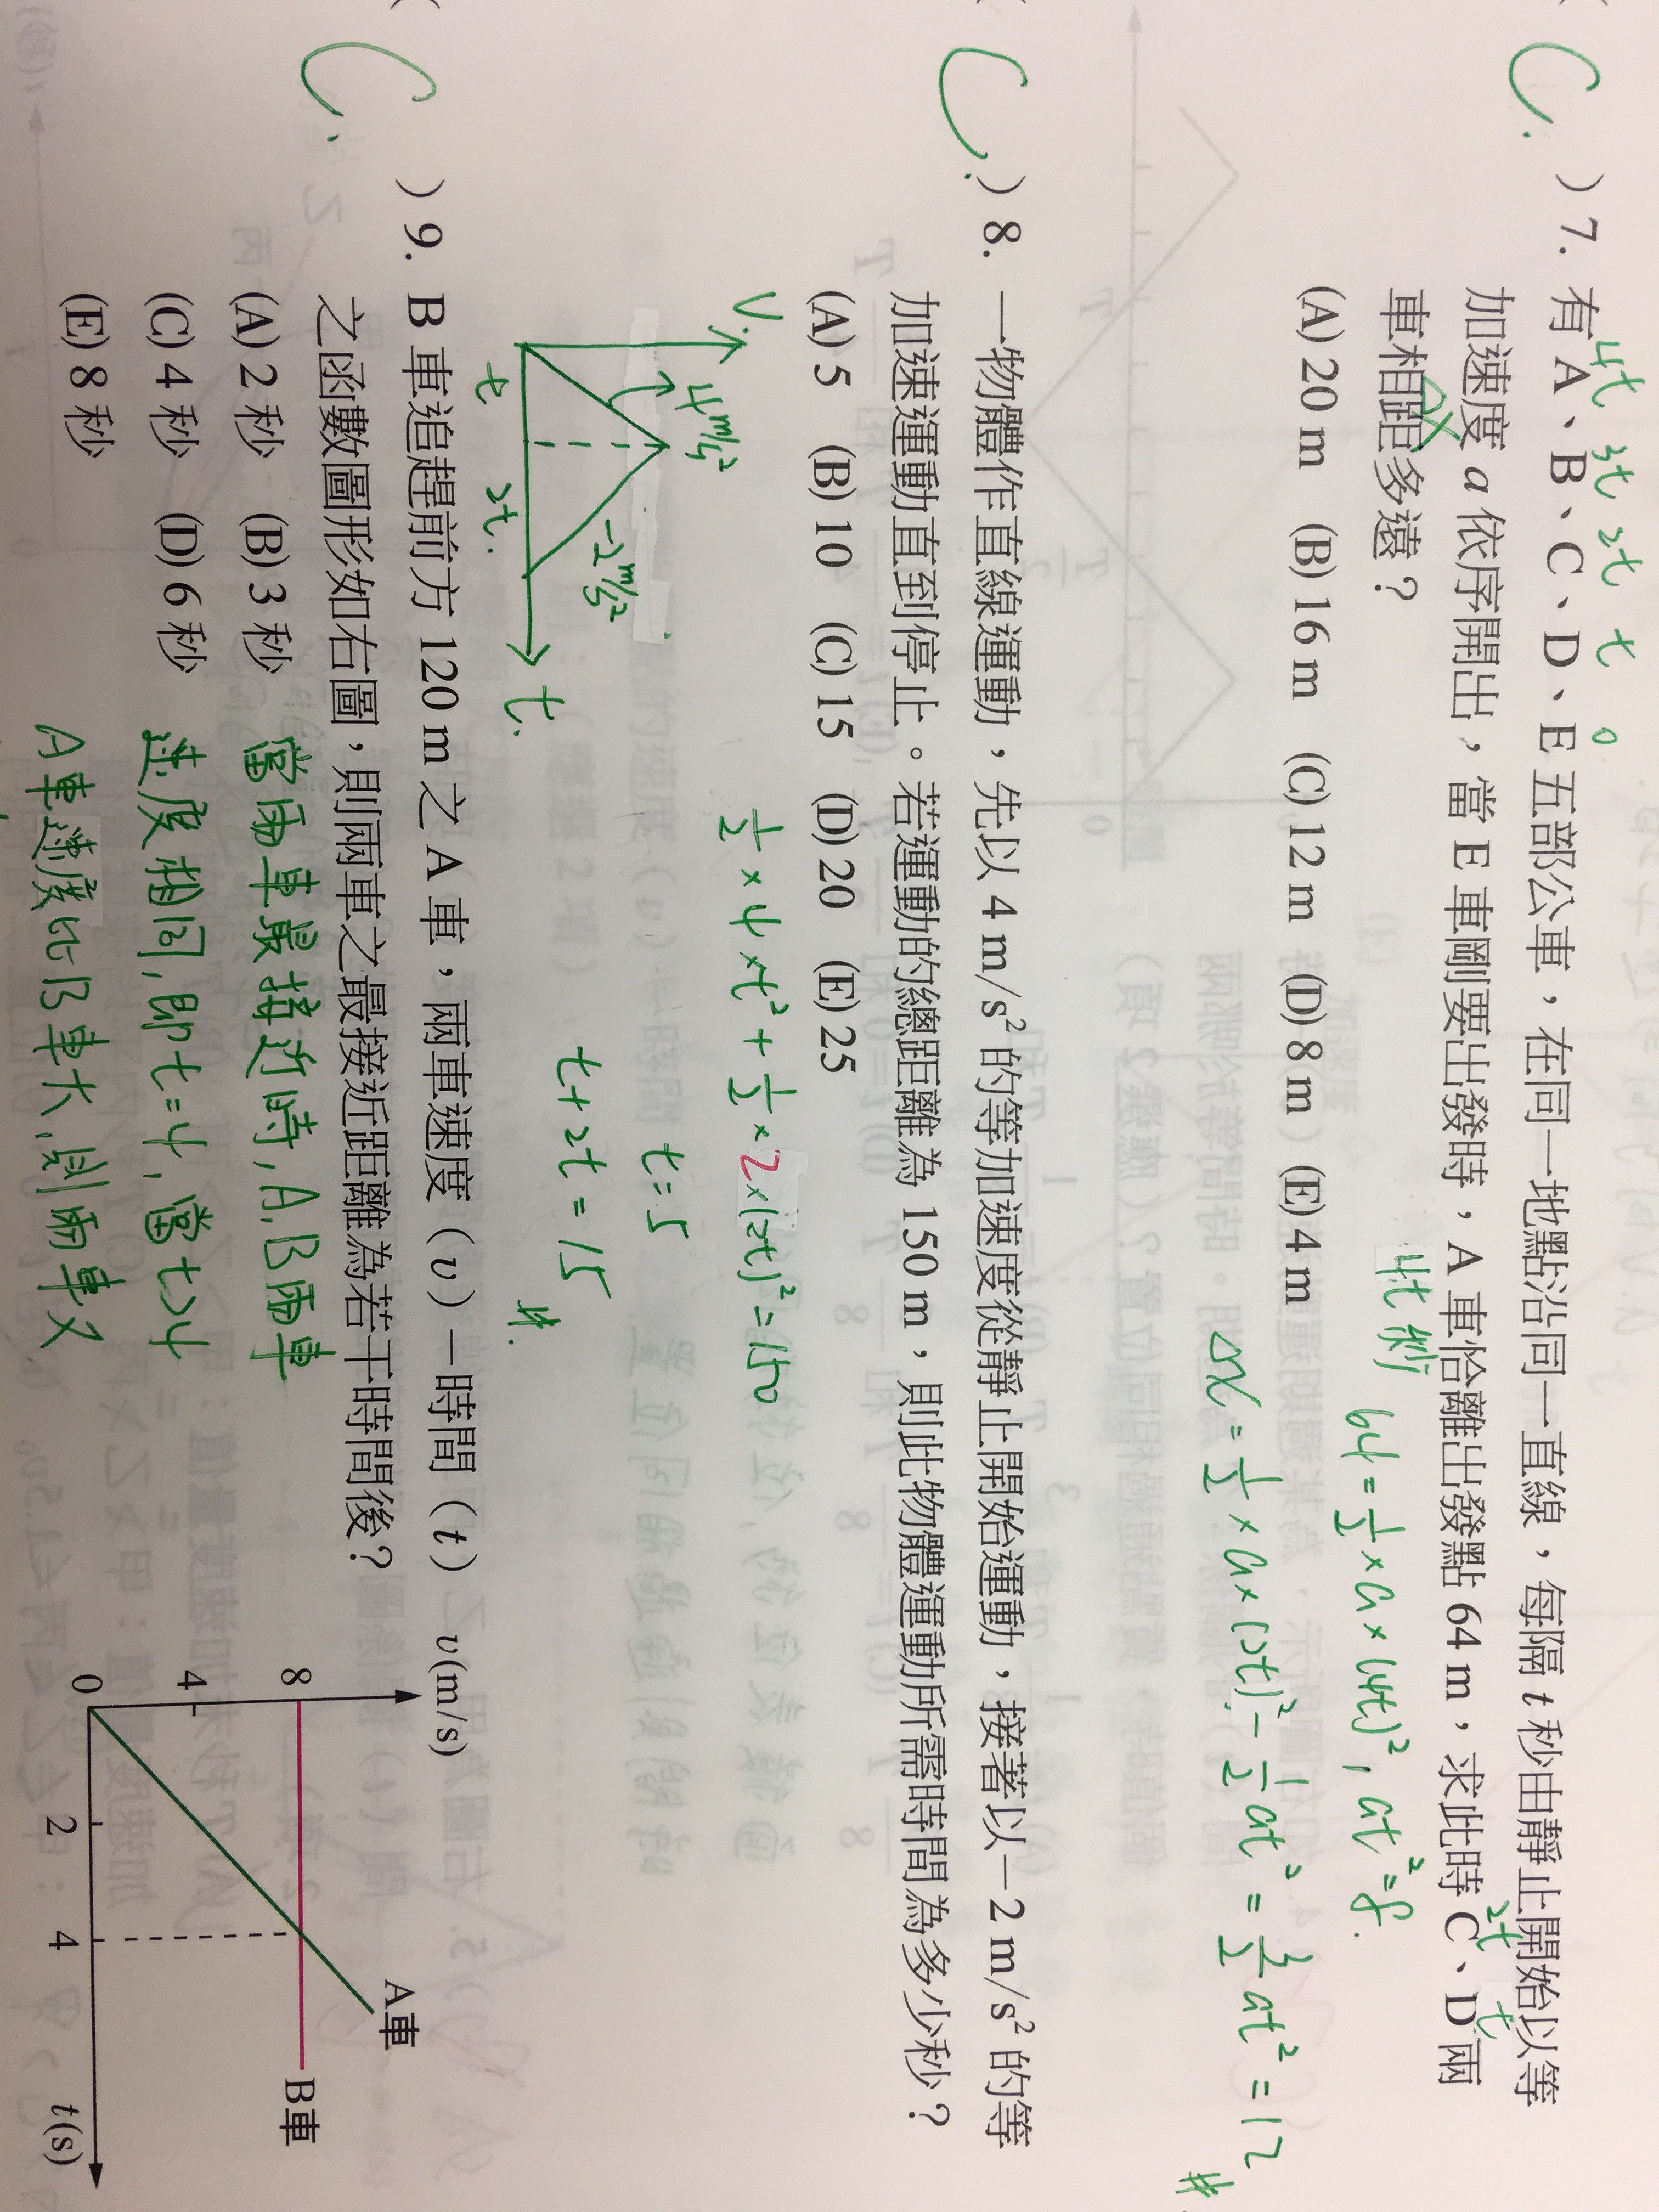 C. ) 7. 有 A、B、C、D、E 五部公車，在同一地點沿同一直線，每隔 t 秒由靜止開始以等
4t 3t 2t t 0
加速度 a 依序開出，當 E 車剛要出發時，A 車恰離出發點 64 m，求此時 C、D 兩
2t t
車相距多遠？
4t 秒
64 = 1/2 × a × (4t)², at² = 8.
(A) 20 m (B) 16 m (C) 12 m (D) 8 m (E) 4 m
Δx = 1/2 × a × (2t)² - 1/2 at² = 3/2 at² = 12 #
C. ) 8. 一物體作直線運動，先以 4 m/s² 的等加速度從靜止開始運動，接著以－2 m/s² 的等
加速運動直到停止。若運動的總距離為 150 m，則此物體運動所需時間為多少秒？
(A) 5 (B) 10 (C) 15 (D) 20 (E) 25
V.
4 m/s²
-2 m/s²
t 2t.
t.
1/2 × 4 × t² + 1/2 × 2 × (2t)² = 150
t = 5
t + 2t = 15 #.
C. ) 9. B 車追趕前方 120 m 之 A 車，兩車速度（v）－時間（t）
之函數圖形如右圖，則兩車之最接近距離為若干時間後？
(A) 2 秒 (B) 3 秒
(C) 4 秒 (D) 6 秒
(E) 8 秒
當兩車最接近時, A.B兩車
速度相同, 即 t = 4, 當 t > 4
A車速度比B車大, 則兩車又
v(m/s)
8
4
0
2
4
A車
B車
t(s)